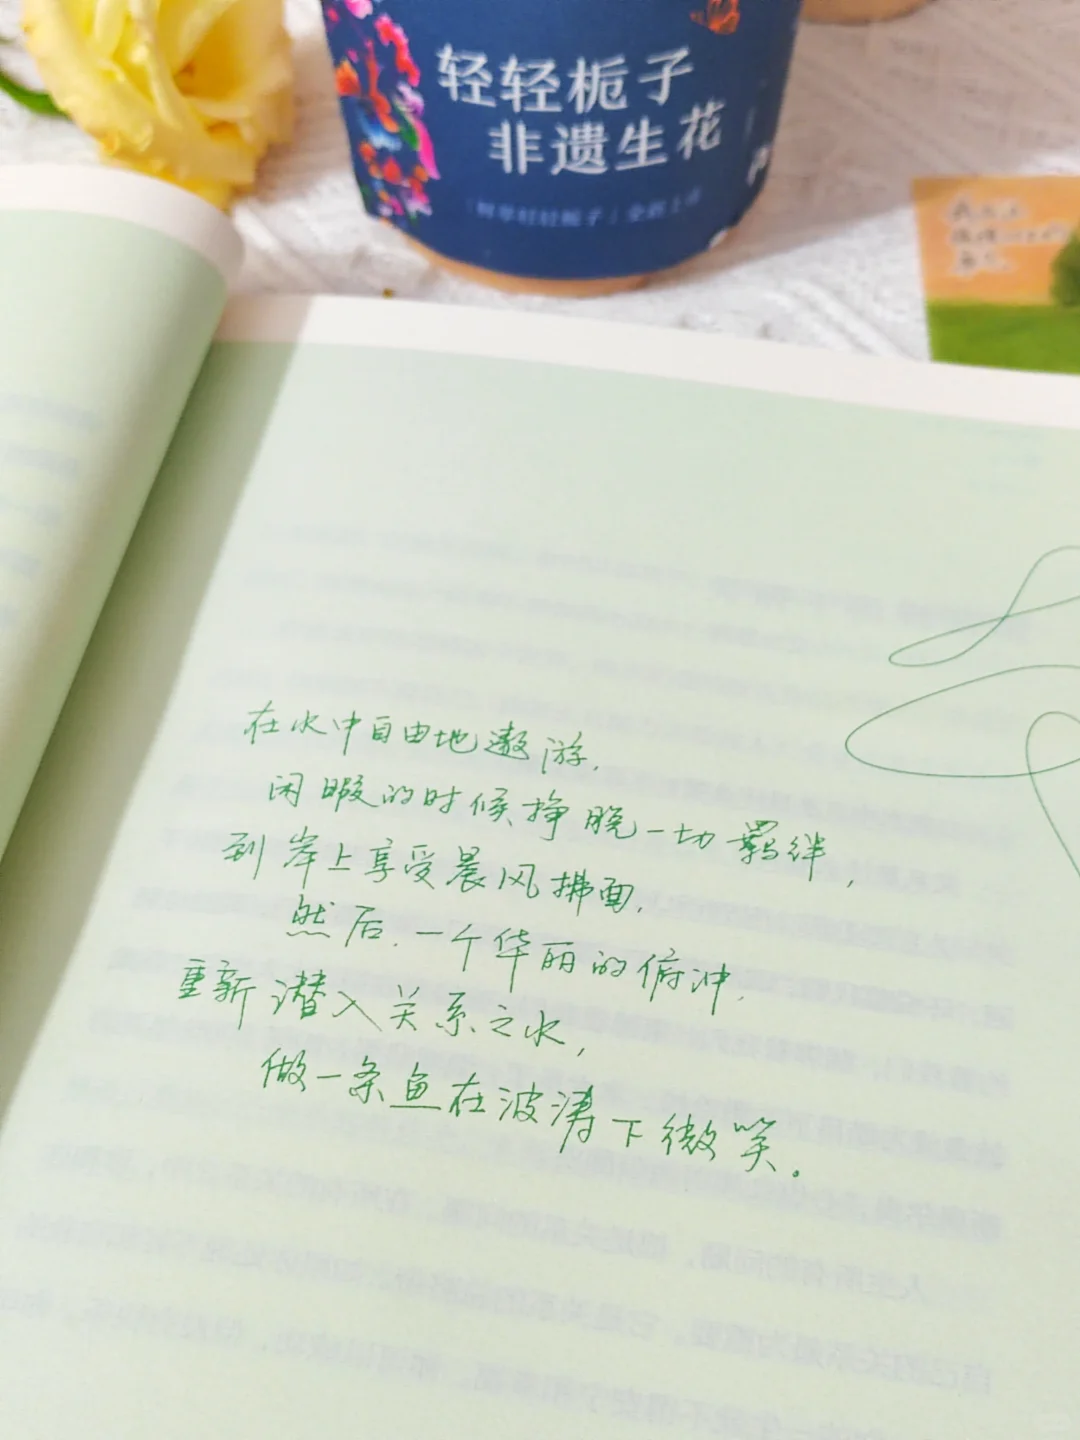 轻轻栀子
非遗生花
在水中自由地遨游,
闲暇的时候挣脱一切羁绊,
到岸上享受晨风拂面,
然后,一个华丽的俯冲,
重新潜入关系之水,
做一条鱼在波涛下微笑。